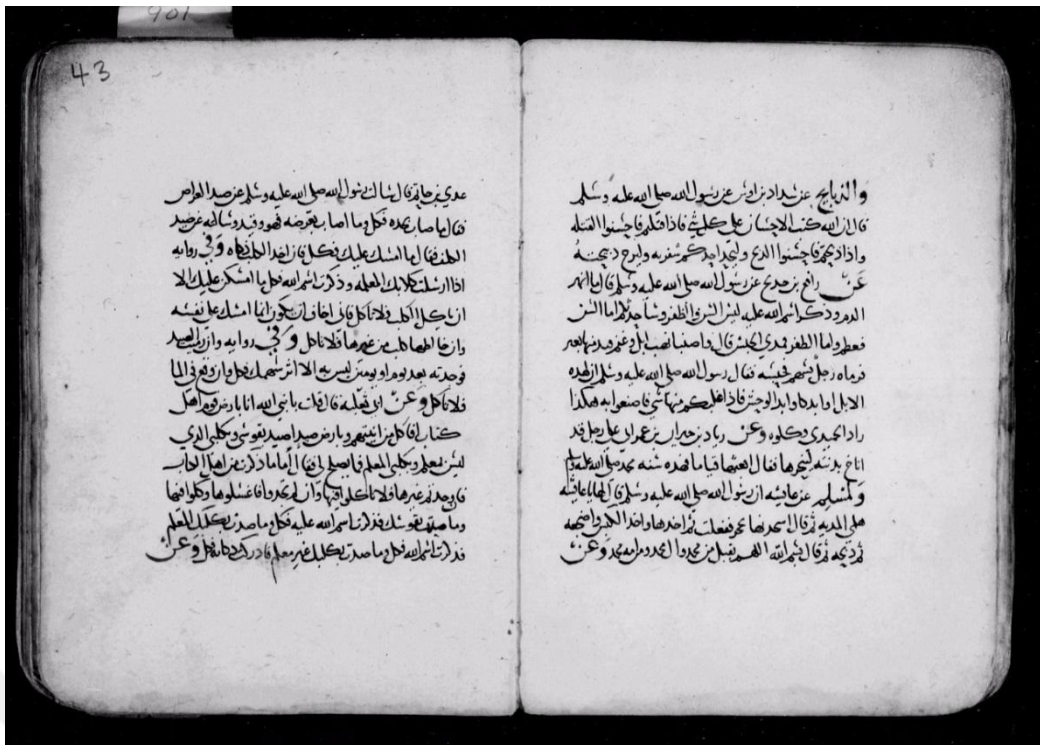 901
43
والذبايح عن شداد بن اوس عن رسول الله صلى الله عليه وسلم
قال ان الله كتب الاحسان على كل شي فاذا قتلتم فاحسنوا القتله
واذا ذبحتم فاحسنوا الذبح وليحد احدكم شفرته وليرح ذبيحته
عن رافع بن خديج عن رسول الله صلى الله عليه وسلم قال ما انهر
الدم وذكر اسم الله عليه ليس السن والظفر وساحدثكم اما السن
فعظم واما الظفر فمدي الحبش قال واصبنا نهب ابل وغنم فند منها بعير
فرماه رجل بسهم فحبسه فقال رسول الله صلى الله عليه وسلم ان لهذه
الابل اوابد كاوابد الوحش فاذا غلبكم منها شي فاصنعوا به هكذا
زاد الحميدي وكلوه وعن زياد بن جبير ان بن عمر اتى على رجل قد
اناخ بدنته لينحرها فقال ابعثها قياما فهذه سنه محمد صلى الله عليه وسلم
ولمسلم عن عايشه ان رسول الله صلى الله عليه وسلم قال لها يا عايشه
هلمي المديه ثم قال اشحذيها بحجر ففعلت ثم اخذها واخذ الكبش واضجعه
ثم ذبحه ثم قال بسم الله اللهم تقبل من محمد وال محمد ومن امه محمد وعن
عدي بن حاتم قال سالت رسول الله صلى الله عليه وسلم عن صيد المعراض
فقال ما اصاب بحده فكل وما اصاب بعرضه فهو وقيد وسالته عن صيد
الكلب فقال ما امسك عليك فكل فان اخذ الكلب ذكاه وفي روايه
اذا ارسلت كلابك المعلمه وذكرت اسم الله فكل ما امسكن عليك الا
ان ياكل الكلب فلا تاكل فاني اخاف ان يكون انما امسك على نفسه
وان خالطها كلب من غيرها فلا تاكل وفي روايه وان رميت الصيد
فوجدته بعد يوم او يومين ليس به الا اثر سهمك فكل وان وقع في الما
فلا تاكل وعن ابي ثعلبه قال قلت يا نبي الله انا بارض قوم اهل
كتاب افناكل من انيتهم وبارض صيد اصيد بقوسي وبكلبي الذي
ليس بمعلم وبكلبي المعلم فما يصلح لي فقال اما ما ذكرت من اهل الكتاب
فان وجدتم غيرها فلا تاكلوا فيها وان لم تجدوا فاغسلوها وكلوا فيها
وما صدت بقوسك فذكرت اسم الله عليه فكل وما صدت بكلبك المعلم
فذكرت اسم الله فكل وما صدت بكلبك غير معلم فادركت ذكاته فكل وعن